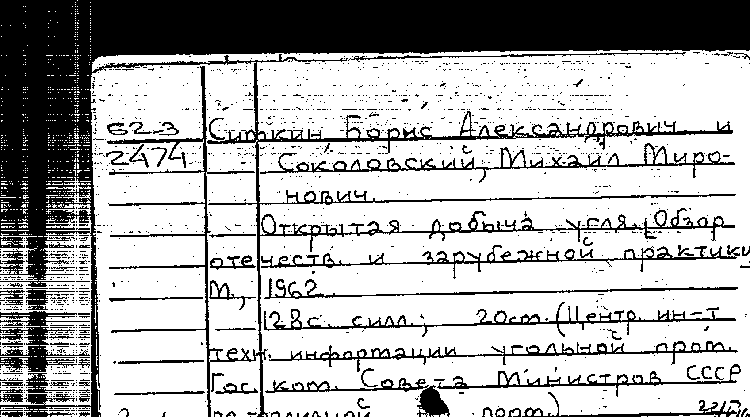 62-3 Ситкин Борис Александрович и
2474 Соколовский, Михаил Миро-
нович.
Открытая добыча угля. [Обзор
отечеств. и зарубежной практики
М., 1962
128с. силл.; 20см. (Центр. ин-т
техн. информации угольной пром.
Гос. ком. Совета Министров СССР
по топливной пром.)